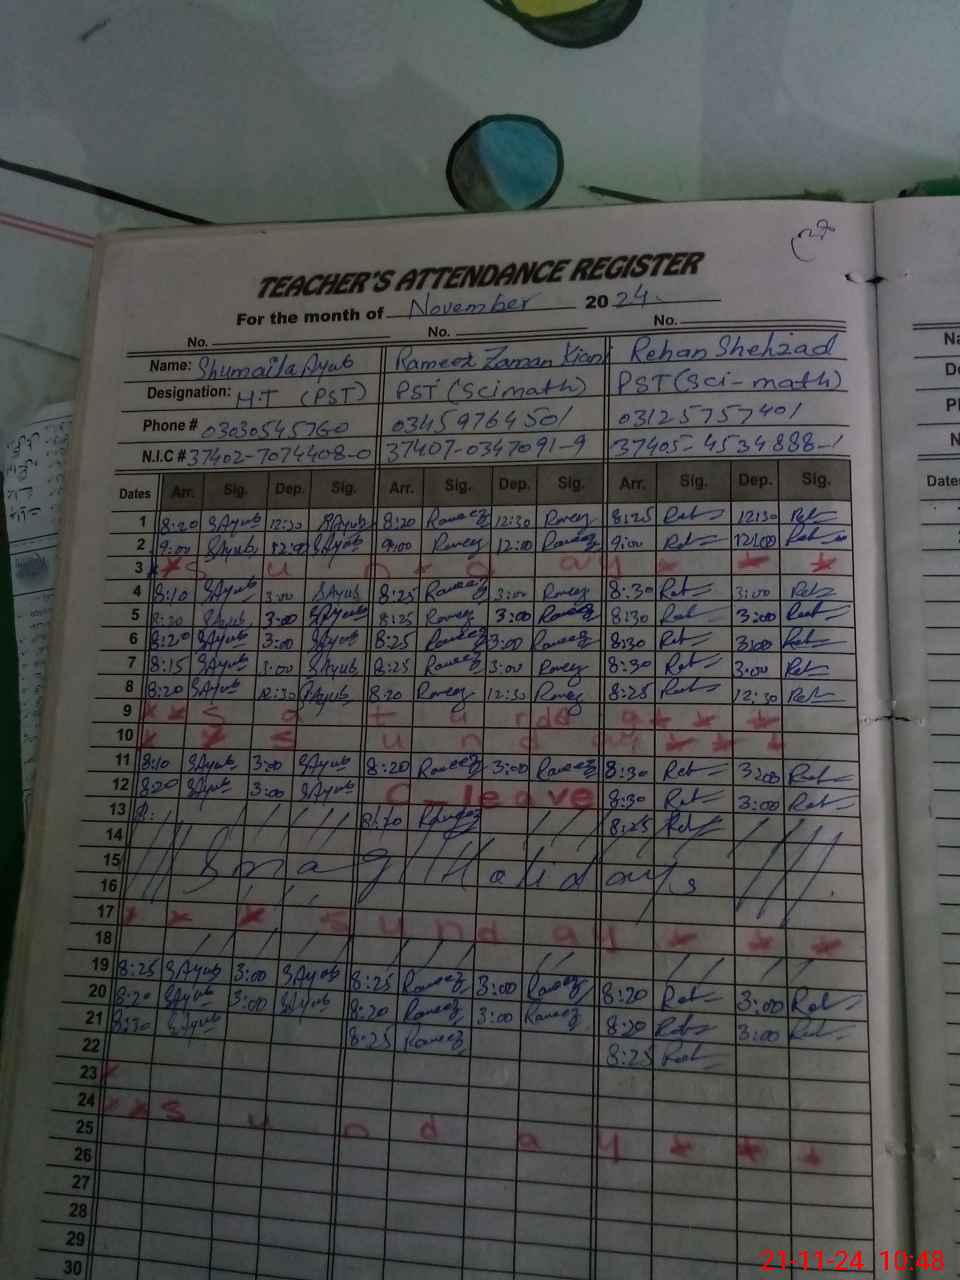 TEACHER'S ATTENDANCE REGISTER
For the month of November 2024
No. No. No.
Name: Shumaila Ayub Rameez Zaman Kiani Rehan Shehzad
Designation: H.T (PST) PST (Sci math) PST (Sci-math)
Phone # 03030545760 03459764501 03125757401
N.I.C # 37402-7074408-0 37407-0347091-9 37405-4534888-1
Dates Arr. Sig. Dep. Sig. Arr. Sig. Dep. Sig. Arr. Sig. Dep. Sig.
1 8:20 SAyub 12:30 SAyub 8:20 Rameez 12:30 Rameez 8:25 12:30
2 9:00 SAyub 12:00 SAyub 9:00 Rameez 12:00 Rameez 9:00 12:00
3 Sunday
4 8:10 SAyub 3:00 SAyub 8:25 Rameez 3:00 Rameez 8:30 3:00
5 8:20 SAyub 3:00 SAyub 8:25 Rameez 3:00 Rameez 8:30 3:00
6 8:20 SAyub 3:00 SAyub 8:25 Rameez 3:00 Rameez 8:30 3:00
7 8:15 SAyub 3:00 SAyub 8:25 Rameez 3:00 Rameez 8:30 3:00
8 8:20 SAyub 12:30 SAyub 8:20 Rameez 12:30 Rameez 8:25 12:30
9
10 Sunday
11 8:10 SAyub 3:00 SAyub 8:20 Rameez 3:00 Rameez 8:30 3:00
12 8:20 SAyub 3:00 SAyub C-leave 8:30 3:00
13 8: 8:20 Rameez 8:25
14
15 Smog Holidays
16
17 Sunday
18
19 8:25 SAyub 3:00 SAyub 8:25 Rameez 3:00 Rameez 8:20 3:00
20 8:20 SAyub 3:00 SAyub 8:20 Rameez 3:00 Rameez 8:20 3:00
21 8:30 SAyub 8:25 Rameez 8:25
22
23
24 Sunday
25
26
27
28
29
30
Date
21-11-24 10:48